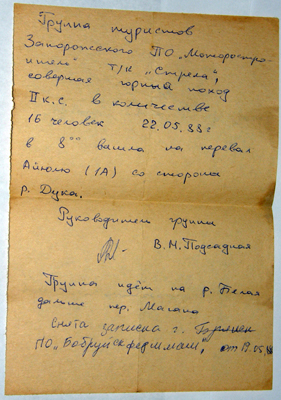 Группа туристов
Запорожского ПО „Моторостро-
итель" т/к „Стрела",
совершая горный поход
II к.с. в количестве
16 человек 22.05.88г
в 8⁰⁰ вышла на перевал
Айюлю (1А) со стороны
р. Дука.
Руководитель группы
В.М. Подсадная
Группа идёт на р. Белая
дальше пер. Магана
Снята записка г.
ПО „Бобруйскферммаш", от 19.05.88